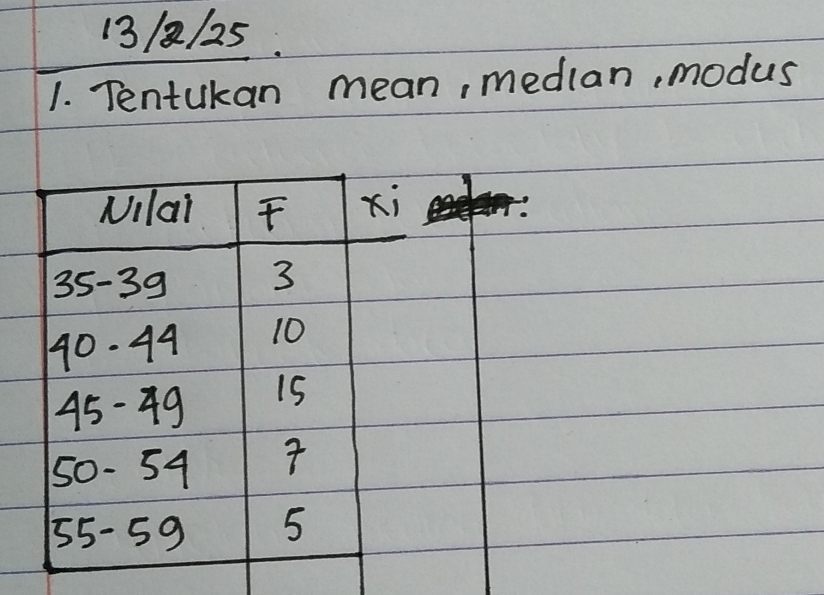 13/2/25.
1. Tentukan mean, median, modus
Nilai F xi
35-39 3
40-44 10
45-49 15
50-54 7
55-59 5